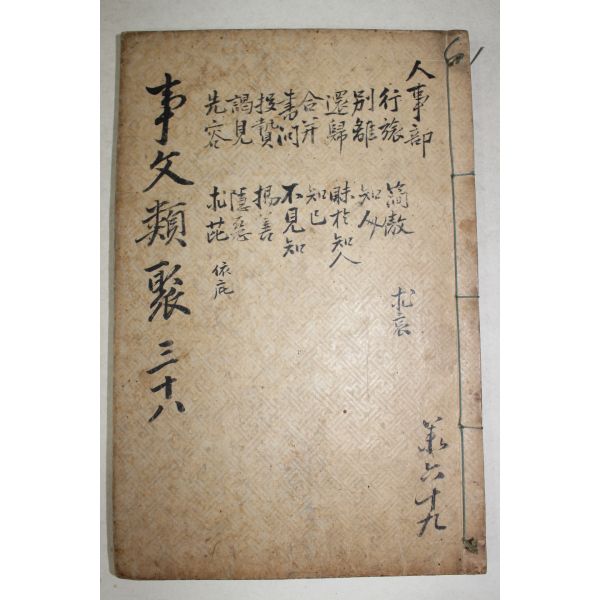 人事部
行旅 簡傲 求哀
別離 知人
還歸 昧於知人
合并 知己
書問 不見知
投贄 揚善
謁見 隱惡
先容 求芘 依庇
事文類聚 三十八
六十九